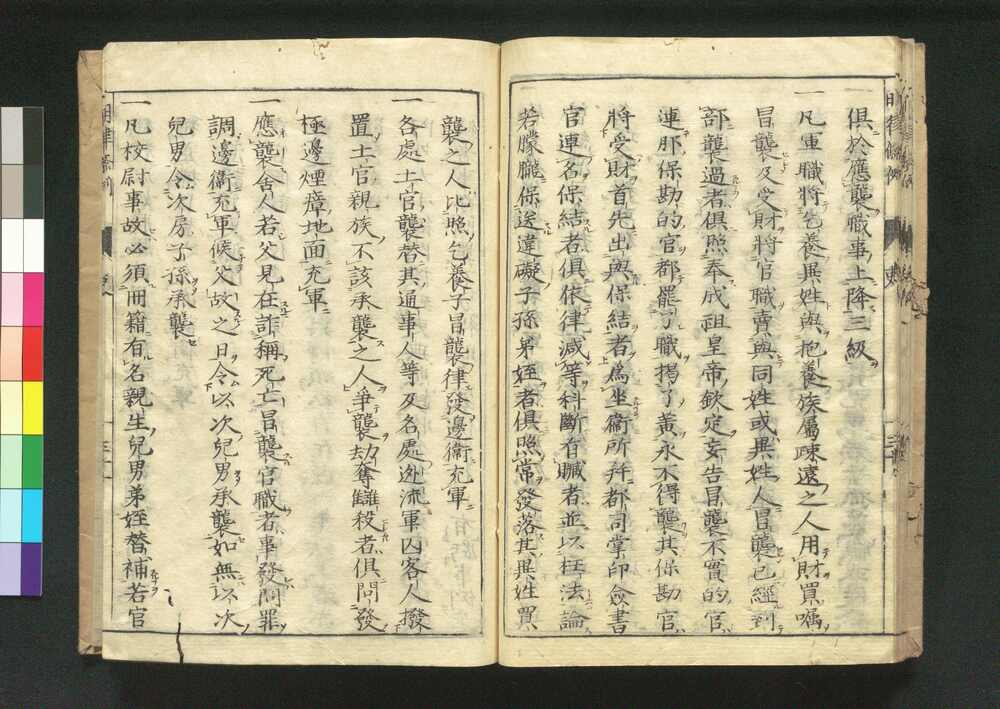 俱於應襲職事上降三級
一凡軍職將乞養異姓與抱養族屬疎遠之人用財買囑
冒襲及受財將官職賣與同姓或異姓人冒襲已經到
部襲過者俱照奉成祖皇帝欽定妄告冒襲不實的官
連那保勘的官都罷了職揭了黃永不得襲其保勘官
將受財首先出與保結者爲坐衞所幷都司掌印僉書
官連名保結者俱依律減等科斷有贓者並以枉法論
若朦朧保送違礙子孫弟姪者俱照常發落其異姓買
襲之人比照乞養子冒襲律發邊衞充軍
一各處土官襲替其通事人等及各處逃流軍囚客人撥
置土官親族不該承襲之人爭襲劫奪讎殺者俱問發
極邊煙瘴地面充軍
一應襲舍人若父見在詐稱死亡冒襲官職者事發問罪
調邊衞充軍候父故之日令以次兒男承襲如無以次
兒男令次房子孫承襲
一凡校尉事故必須冊籍有名親生兒男弟姪替補若官